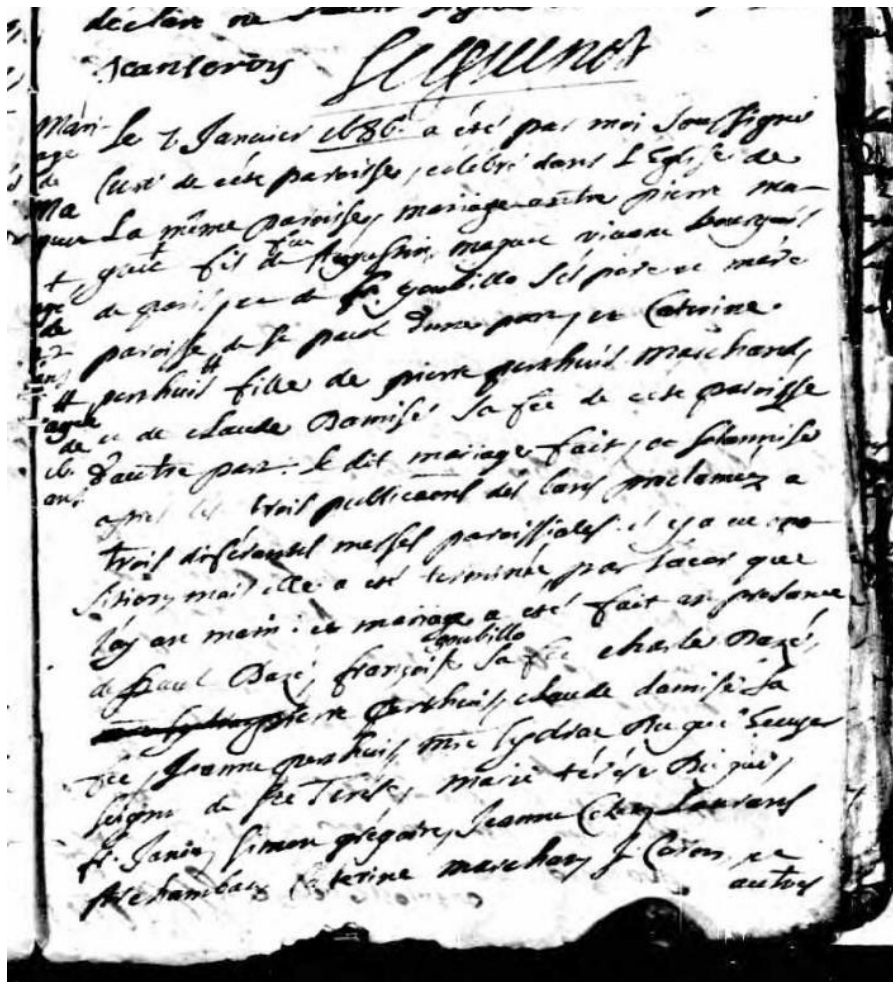 déclaré ne
Jean leroy Seguenot
Mari-
age
de
Ma
que
Le 7 Janvier 1686 a été par moi soussigné
Curé de céte paroisse, célébré dans L'Église de
La même paroisse, mariage antre pierre ma-
gué fils de feu Augustin maguée vivant bourgeois
de paris, et de goubillo sés pére et mére
paroisse de St paul d'une part, et Caterine
perthuis fille de pierre perthuis marchand,
agée
de
16
ans
et de claude Damisé sa fée de cete paroisse
d'autre part. Le dit mariage fait, et solannisé
aprés les trois publicaons dés bans proclaméz a
trois diférantes messes paroissiales. il y a eu opo-
sition, mais elle a eté terminée par que
j'ay an main: ce mariage a eté fait an presance
de Paul Dazé, françoise goubillo sa fée charle Dazé,
pierre perthuis, claude damisé sa
fée, Jeanne perthuis, Mre Sydrac Dugué Ecuyer
seignr de Ste Terése, marie térése Dugué,
fr. Janin, Simon grégoire, Jeanne Laurans
Archambau Caterine marchan, J. Caron, et
autres